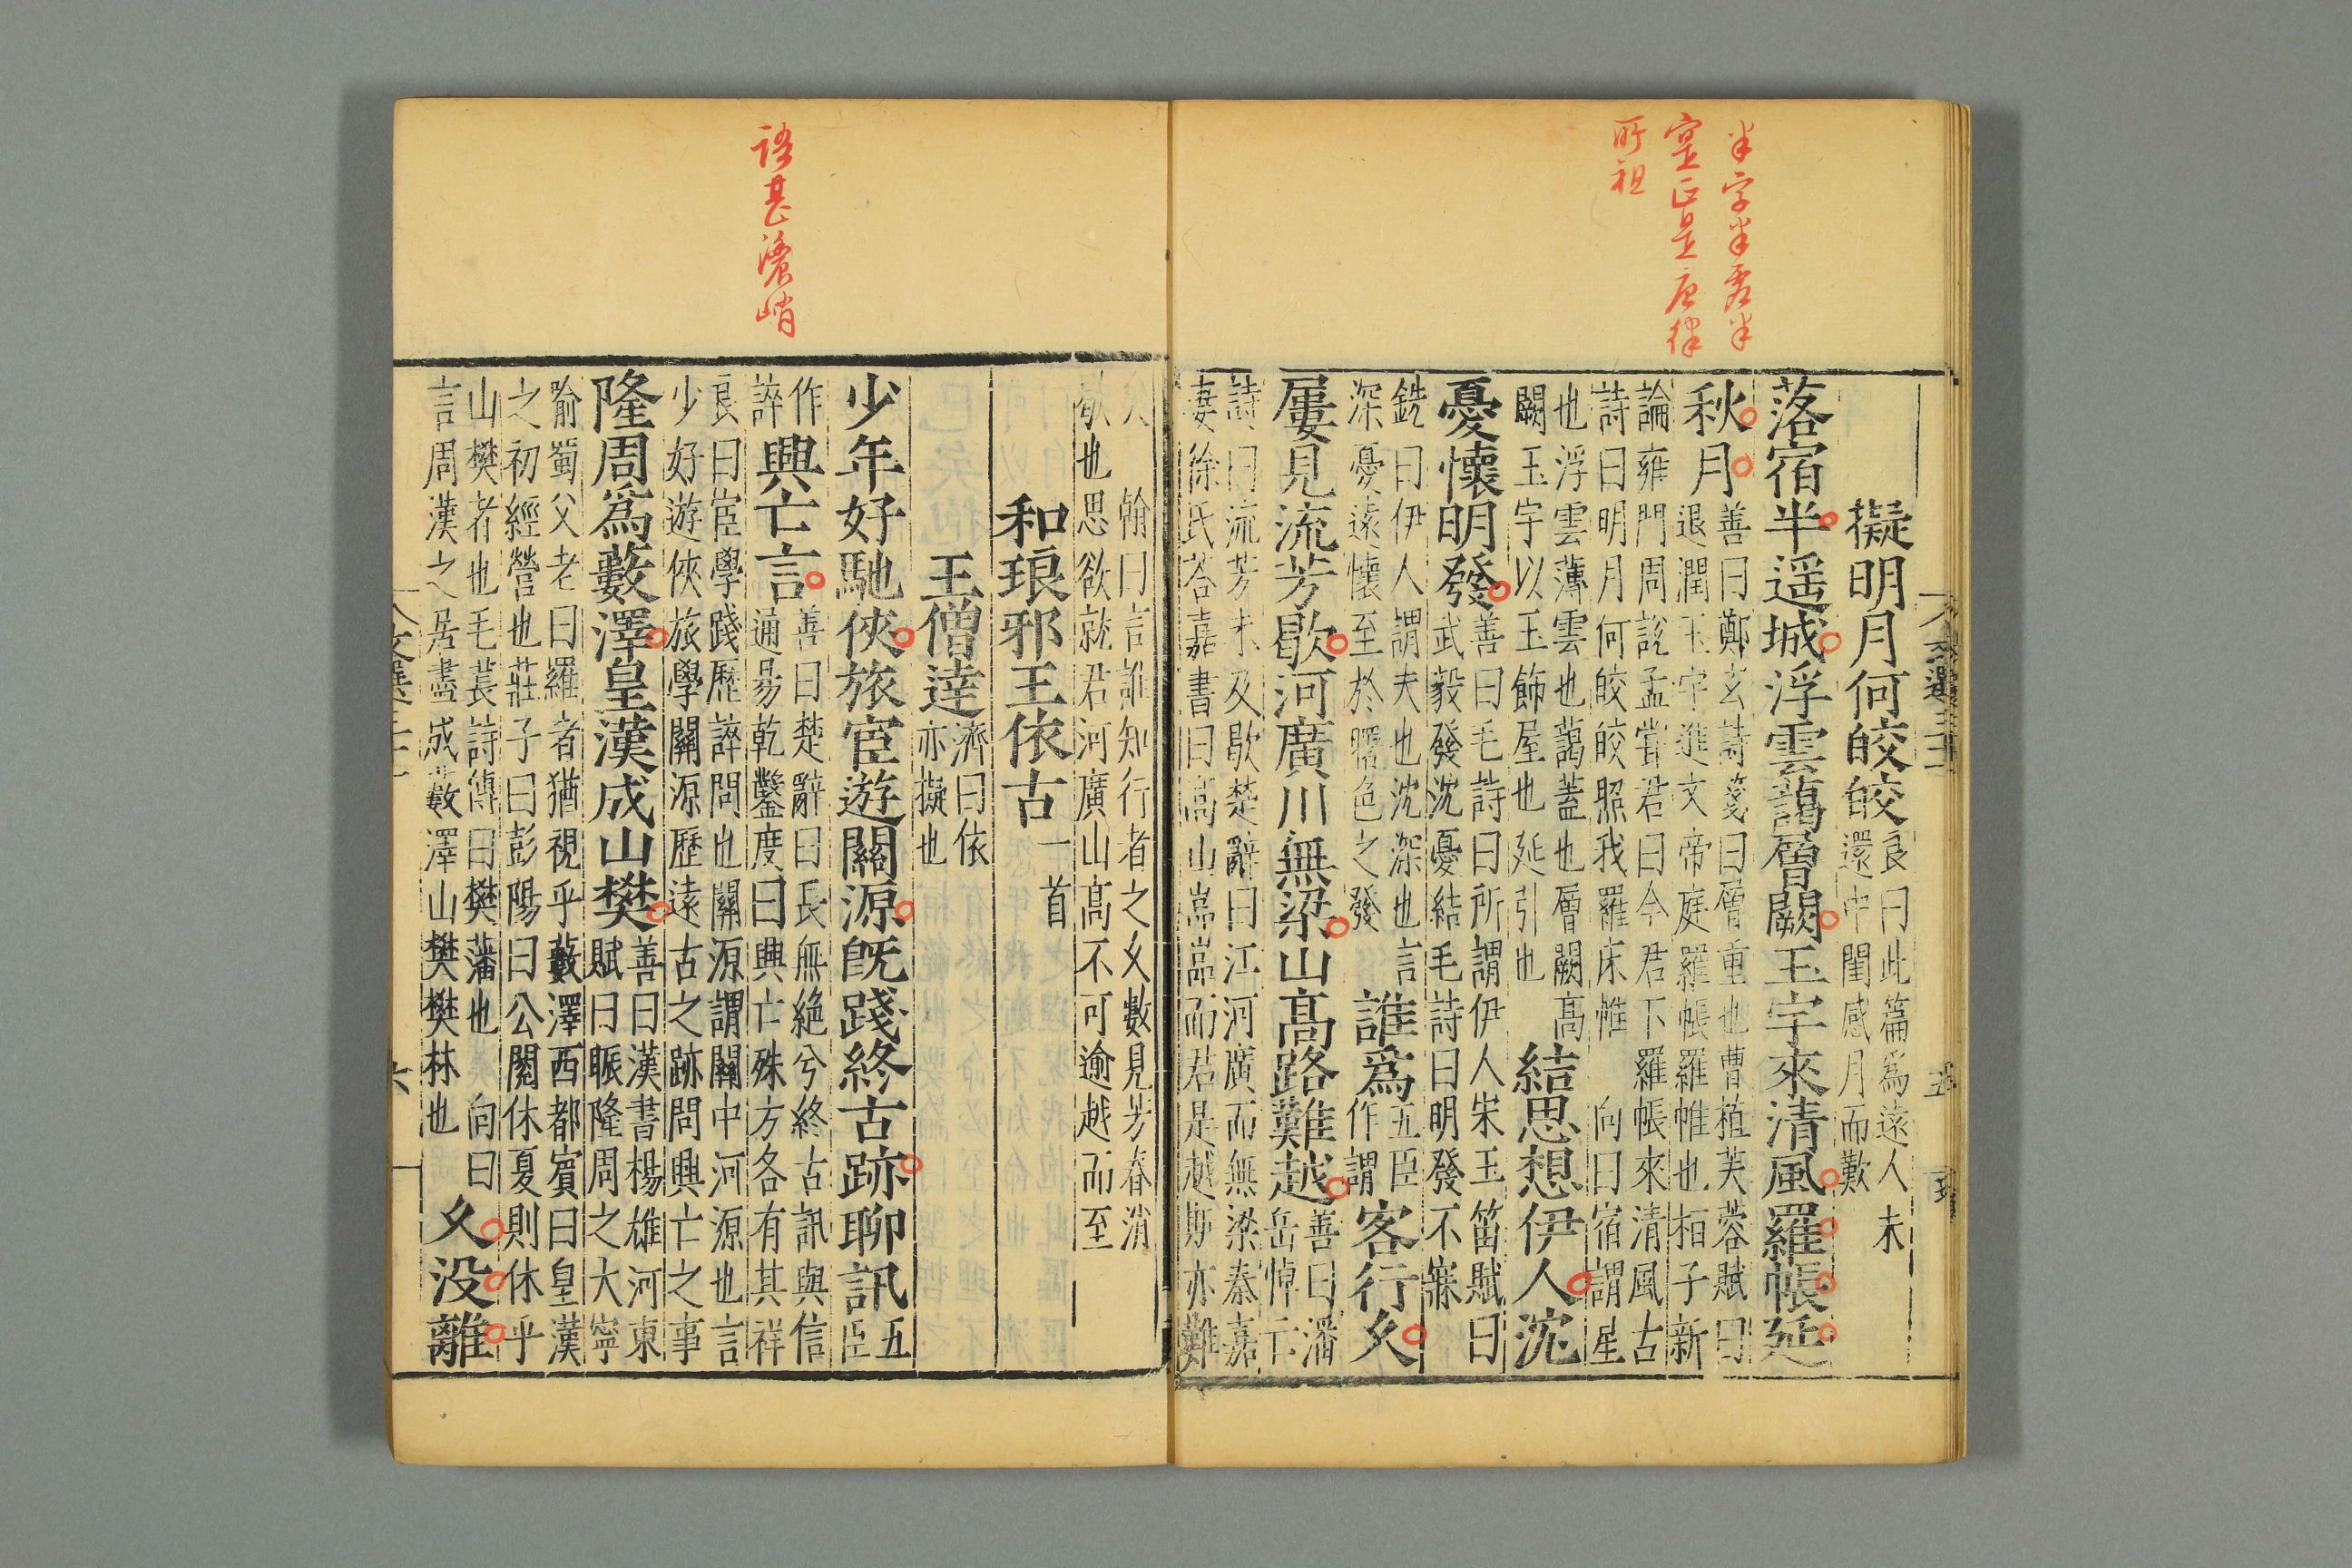 半字半露半
寔正是唐律
所祖
擬明月何皎皎
良曰此篇為遠人未
還中閨感月而歎
落宿半遥城浮雲藹層闕玉宇來清風羅帳延
秋月
善曰鄭玄詩箋曰層重也曹植芙蓉賦曰
退潤玉宇進文帝庭羅帳羅帷也栢子新
論雍門周說孟嘗君曰今君下羅帳來清風古
詩曰明月何皎皎照我羅床帷 向曰宿謂星
也浮雲薄雲也藹蓋也層闕高
闕玉宇以玉飾屋也延引也
結思想伊人沈
憂懷明發
善曰毛詩曰所謂伊人宋玉笛賦曰
武毅發沈憂結毛詩曰明發不寐
銑曰伊人謂夫也沈深也言
深憂遠懷至於曙色之發
誰為
五臣
作謂
客行久
屢見流芳歇河廣川無梁山髙路難越
善曰潘
岳悼亡
詩曰流芳未及歇楚辭曰江河廣而無梁秦嘉
妻徐氏荅嘉書曰高山嵓嵓而君是越斯亦難
翰曰言誰知行者之久數見芳春消
歇也思欲就君河廣山髙不可逾越而至
和琅邪王依古一首
王僧達
濟曰依
亦擬也
少年好馳俠旅宦遊關源旣踐終古跡聊訊
五
臣
作
誶
興亡言
善曰楚辭曰長無絶兮終古訊與信
通易乾鑿度曰興亡殊方各有其祥
良曰宦學踐歷誶問也關源謂關中河源也言
少好遊俠旅學關源歷遠古之跡問興亡之事
隆周為藪澤皇漢成山樊
善曰漢書楊雄河東
賦曰眽隆周之大寧
喻蜀父老曰羅者猶視乎藪澤西都賓曰皇漢
之初經營也莊子曰彭陽曰公閱休夏則休乎
山樊者也毛萇詩傳曰樊藩也 向曰
言周漢之居盡成藪澤山樊樊林也
久没離
語甚滄峭
六